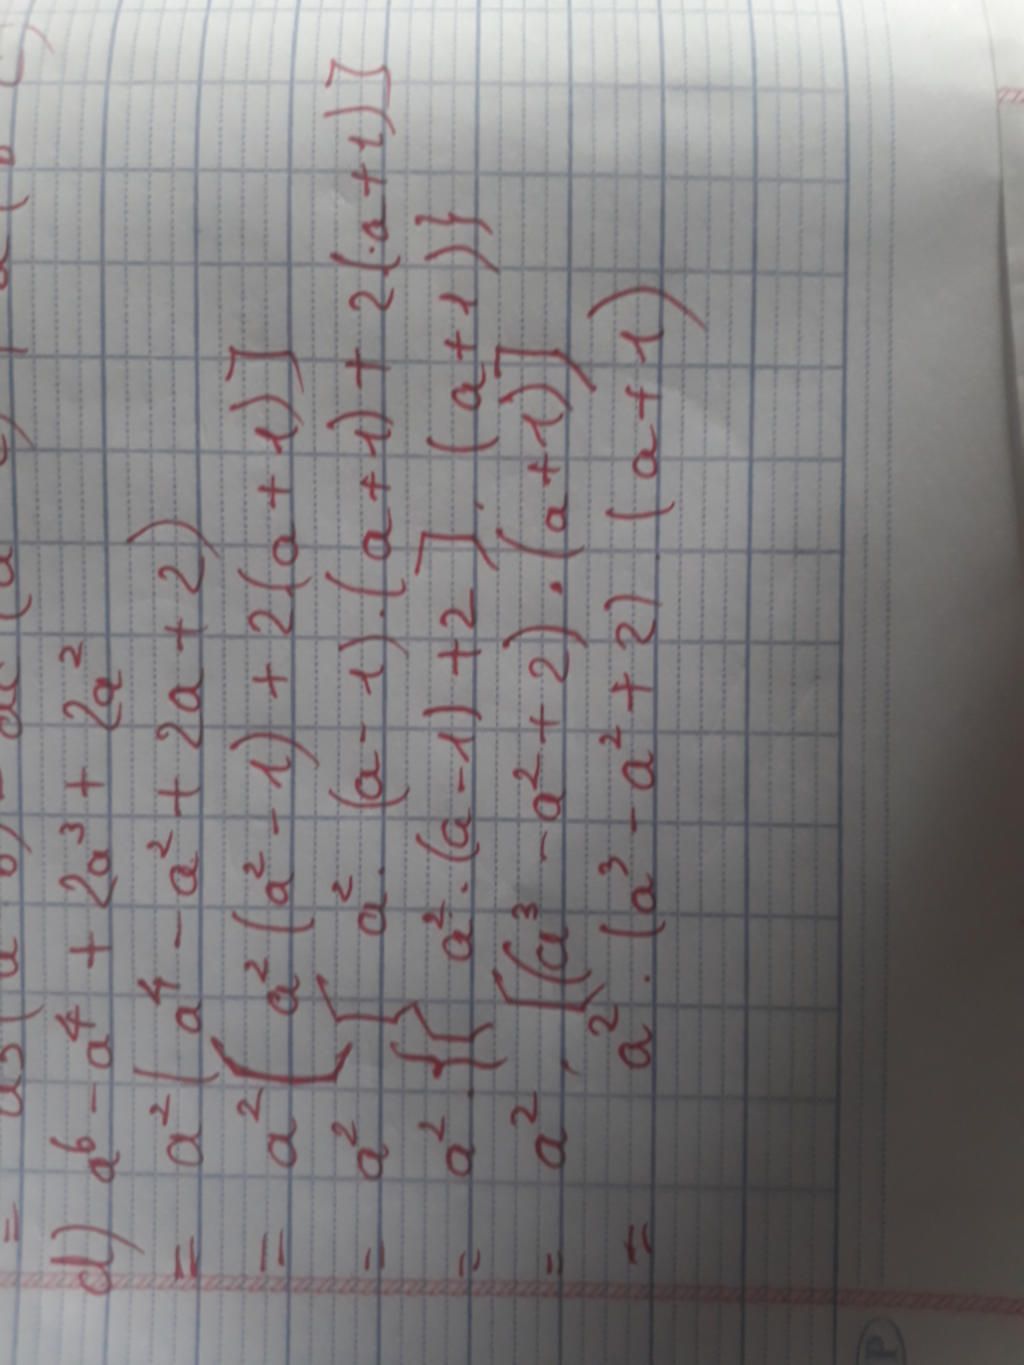 d) a⁶ - a⁴ + 2a³ + 2a²
= a² (a⁴ - a² + 2a + 2)
= a² [a² (a² - 1) + 2(a + 1)]
= a² [a². (a - 1).(a + 1) + 2(.a + 1)]
= a². {[a².(a - 1) + 2]. (a + 1)}
= a². [(a³ - a² + 2).(a + 1)]
= a². (a³ - a² + 2) (a + 1)